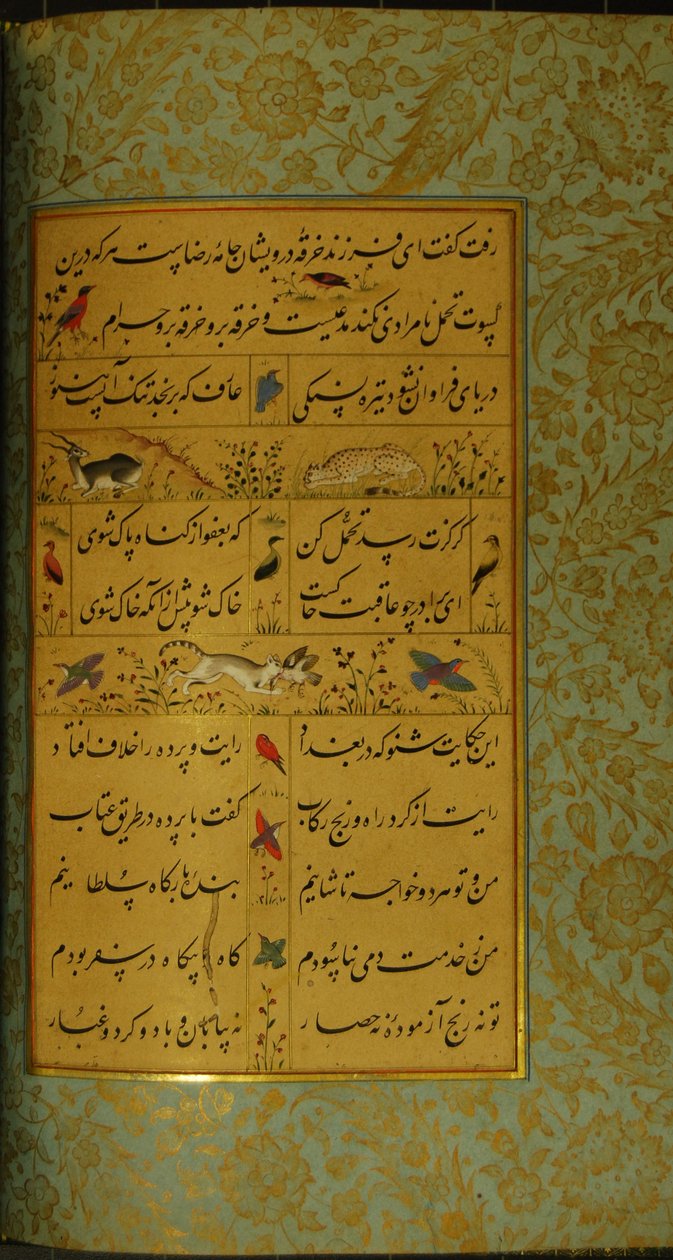 رفت گفت ای فرزند خرقهٔ درویشان جامهٔ رضاست هر که درین
کسوت تحمل نامرادی نکند مدعیست و خرقه برو حرام
دریای فراوان نشود تیره بسنگی عارف که برنجد تنک آبست هنوز
گر گزندت رسد تحمل کن که بعفو از گناه پاک شوی
ای برادر چو عاقبت خاکست خاک شو پیش از آنکه خاک شوی
این حکایت شنو که در بغداد رایت و پرده را خلاف افتاد
رایت از گرد راه و رنج رکاب گفت با پرده در طریق عتاب
من و تو هر دو خواجه تاشانیم بندهٔ بارگاه سلطانیم
من ز خدمت دمی نیاسودم گاه و بیگاه در سفر بودم
تو نه رنج آزمودهٔ نه حصار نه بیابان و باد و گرد و غبار